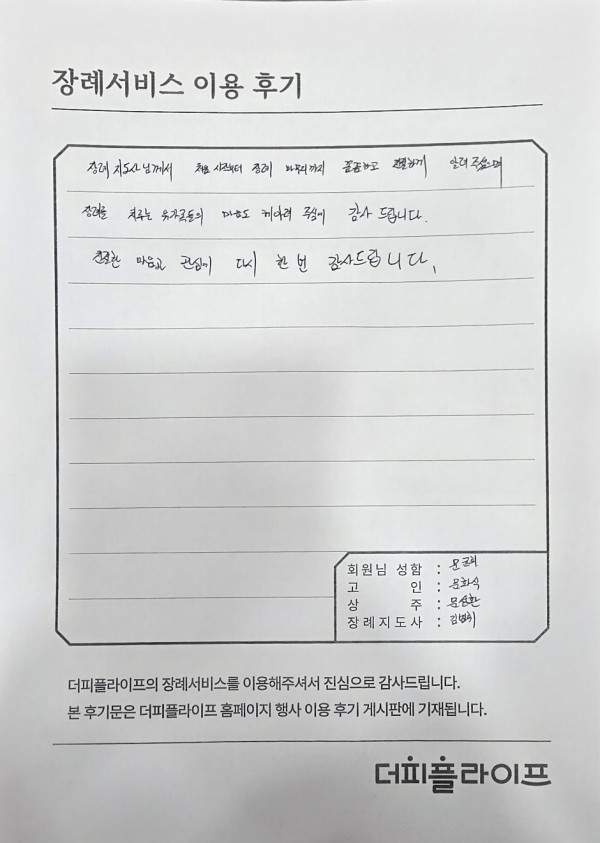 장례서비스 이용 후기
장례 지도사님께서 처음 시작부터 장례 마무리까지 꼼꼼하고 친절하게 알려 주셨으며
장례를 치루는 유가족들의 마음도 헤아려 주심에 감사 드립니다.
친절한 마음과 관심에 다시 한 번 감사드립니다.
회원님 성함 :
고 인 : 문화식
상 주 : 문성환
장례지도사 :
더피플라이프의 장례서비스를 이용해주셔서 진심으로 감사드립니다.
본 후기문은 더피플라이프 홈페이지 행사 이용 후기 게시판에 기재됩니다.
더피플라이프